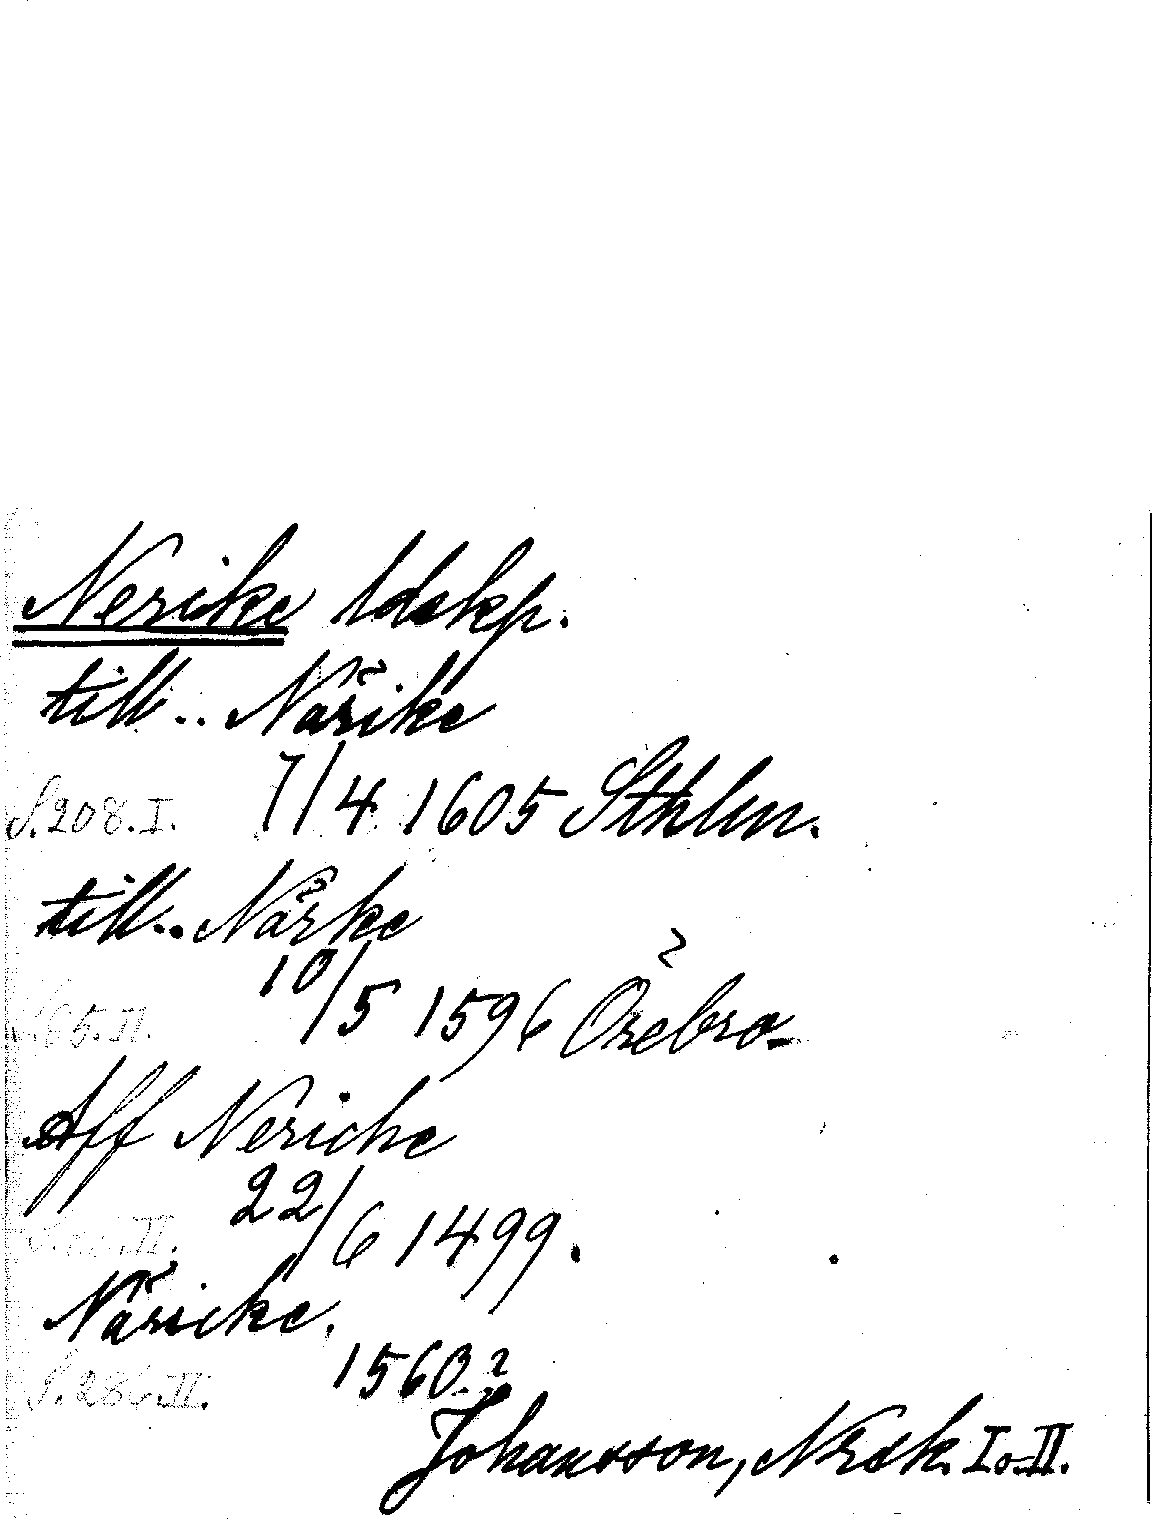 Nerike ldskp.
till.. Närike
S. 208. I. 7/4 1605 Sthlm.
till.. Närke
S. 65. II. 10/5 1596 Örebro.
Aff Neriche
22/6 1499.
II.
Näricke.
S. 286. II. 1560?
Johansson, NRdk. I o. II.